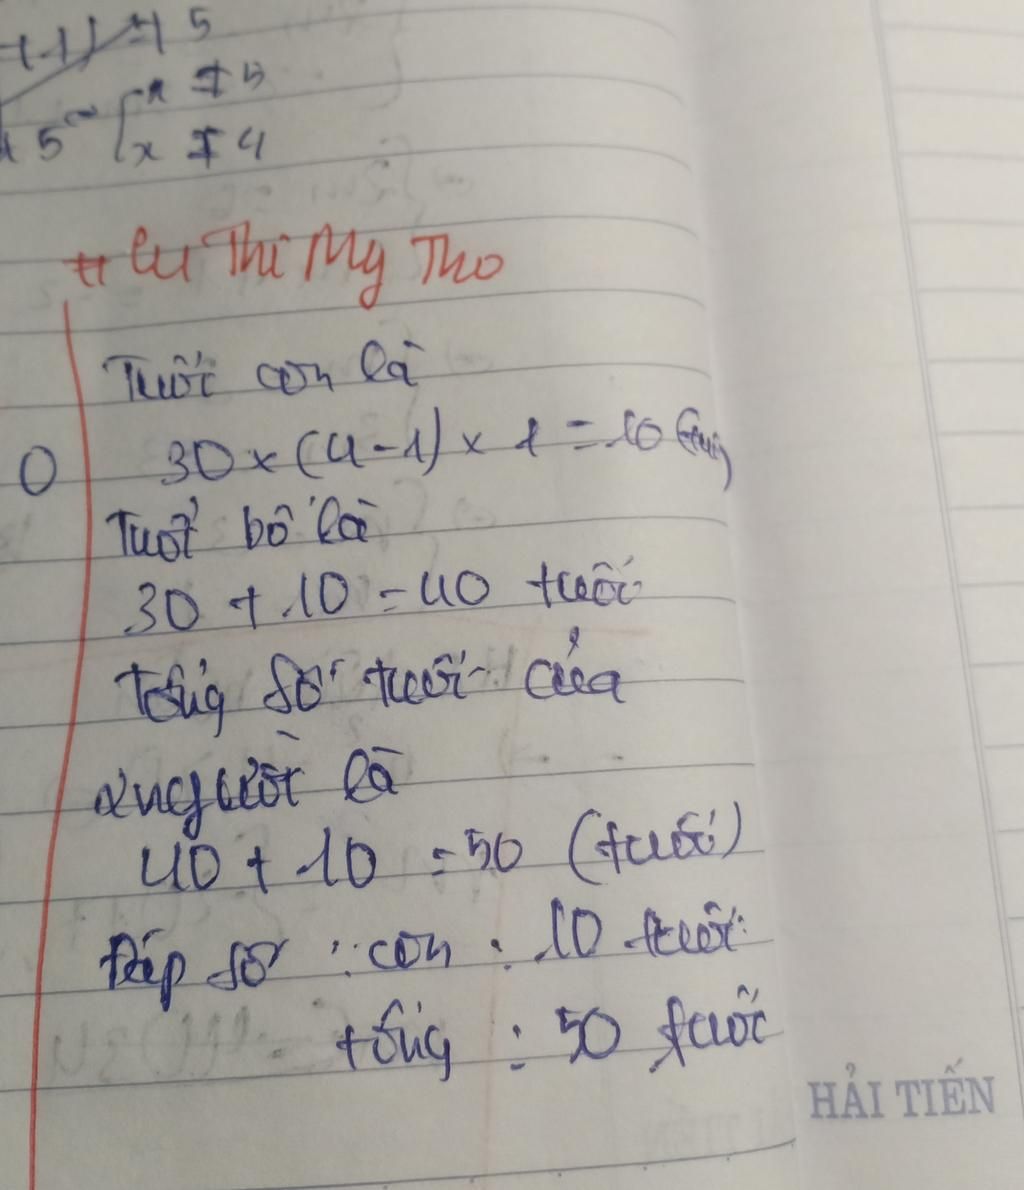 5
5
x ≠ 4
# Lu Thi My Tho
Tuổi con là
0 30 × (4 - 1) × 1 = 10
Tuổi bố là
30 + 10 = 40 tuổi
tổng số tuổi của
2 người là
40 + 10 = 50 (tuổi)
Đáp số : con : 10 tuổi
tổng : 50 tuổi
HẢI TIẾN